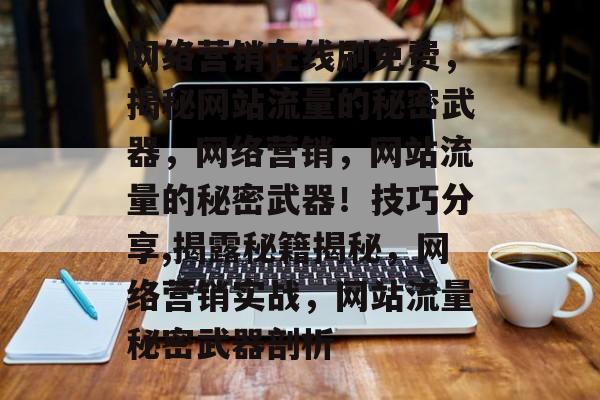 网络营销在线刷免费，
揭秘网站流量的秘密武
器，网络营销，网站流
量的秘密武器！技巧分
享,揭露秘籍揭秘，网
络营销实战，网站流量
秘密武器剖析